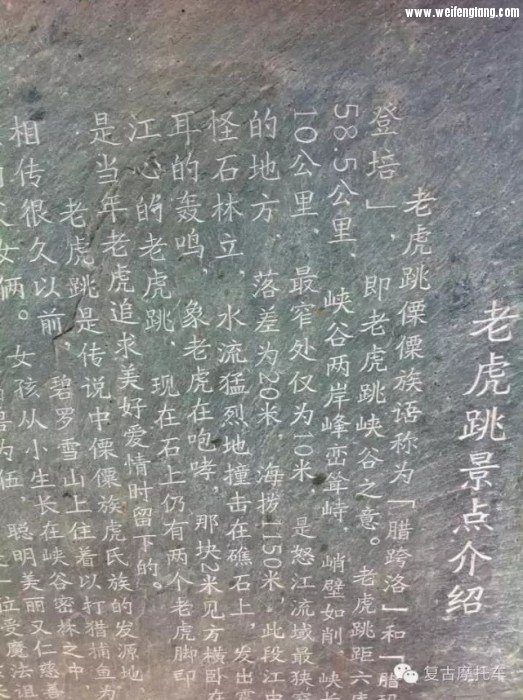 www.weifengtang.com
老虎跳景点介绍
老虎跳傈僳族话称为「腊跨洛」和「腊玛
登培」，即老虎跳峡谷之意。老虎跳距六库
58.5公里，峡谷两岸峰峦耸峙，峭壁如削，峡长
10公里，最窄处仅为10米，是怒江流域最狭窄
的地方，落差为20米，海拨1150米，此段江中
怪石林立，水流猛烈地撞击在礁石上，发出震
耳的轰鸣，象老虎在咆哮，那块2米见方横卧在
江心的老虎跳，现在石上仍有两个老虎脚印
是当年老虎追求美好爱情时留下的。
老虎跳是传说中傈僳族虎氏族的发源地
相传很久以前，碧罗雪山上住着以打猎捕鱼为
父女俩。女孩从小生长在峡谷密林之中
为伍，聪明美丽又仁慈善
一位受魔法诅
复古摩托车